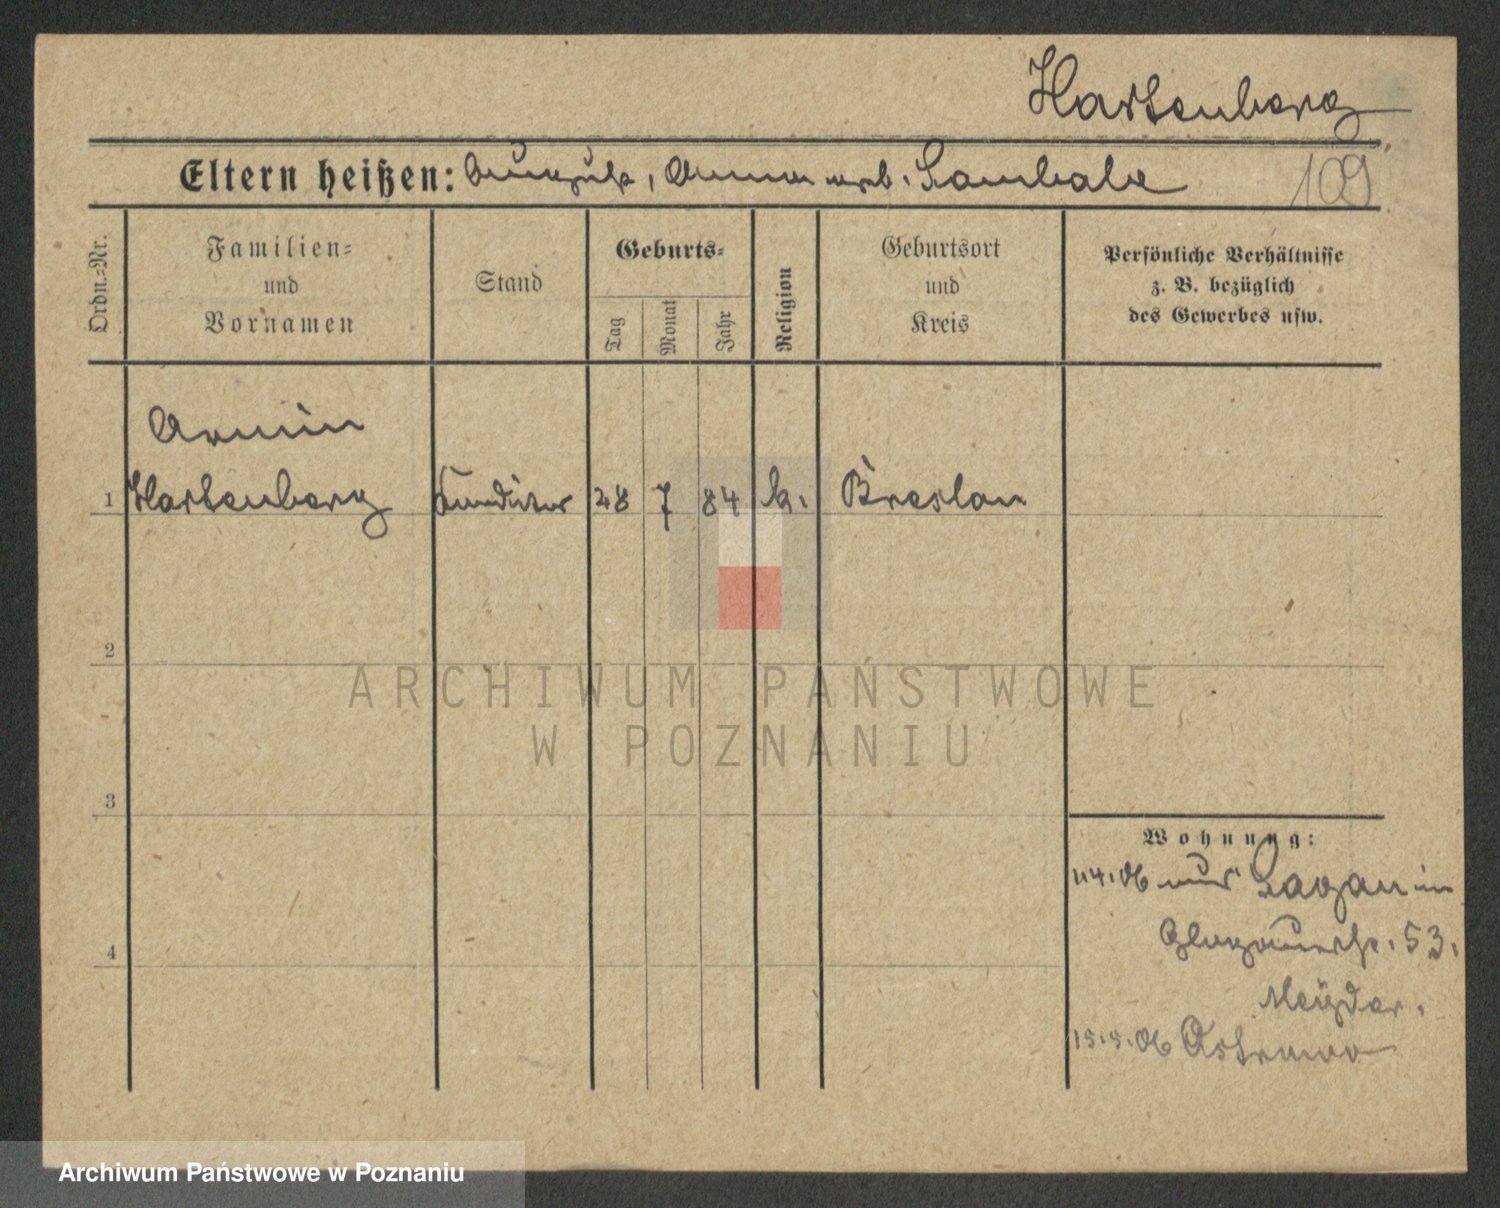 Hartenberg
Eltern heißen: August, Anna geb. Sambale
109
Ordn.-Nr.
Familien-
und
Vornamen
Stand
Geburts-
Tag
Monat
Jahr
Religion
Geburtsort
und
Kreis
Persönliche Verhältnisse
z. B. bezüglich
des Gewerbes usw.
Armin
1 Hartenberg Konditor 28 7 84 k. Breslau
2
3
4
ARCHIWUM PAŃSTWOWE
W POZNANIU
Wohnung:
4.06 aus Sagan in
Glogauerstr. 53.
15.5.06 Ostrowo
Archiwum Państwowe w Poznaniu